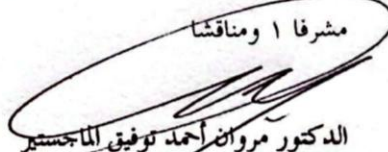 مشرفا ١ ومناقشا
الدكتور مروان أحمد توفيق الماجستير